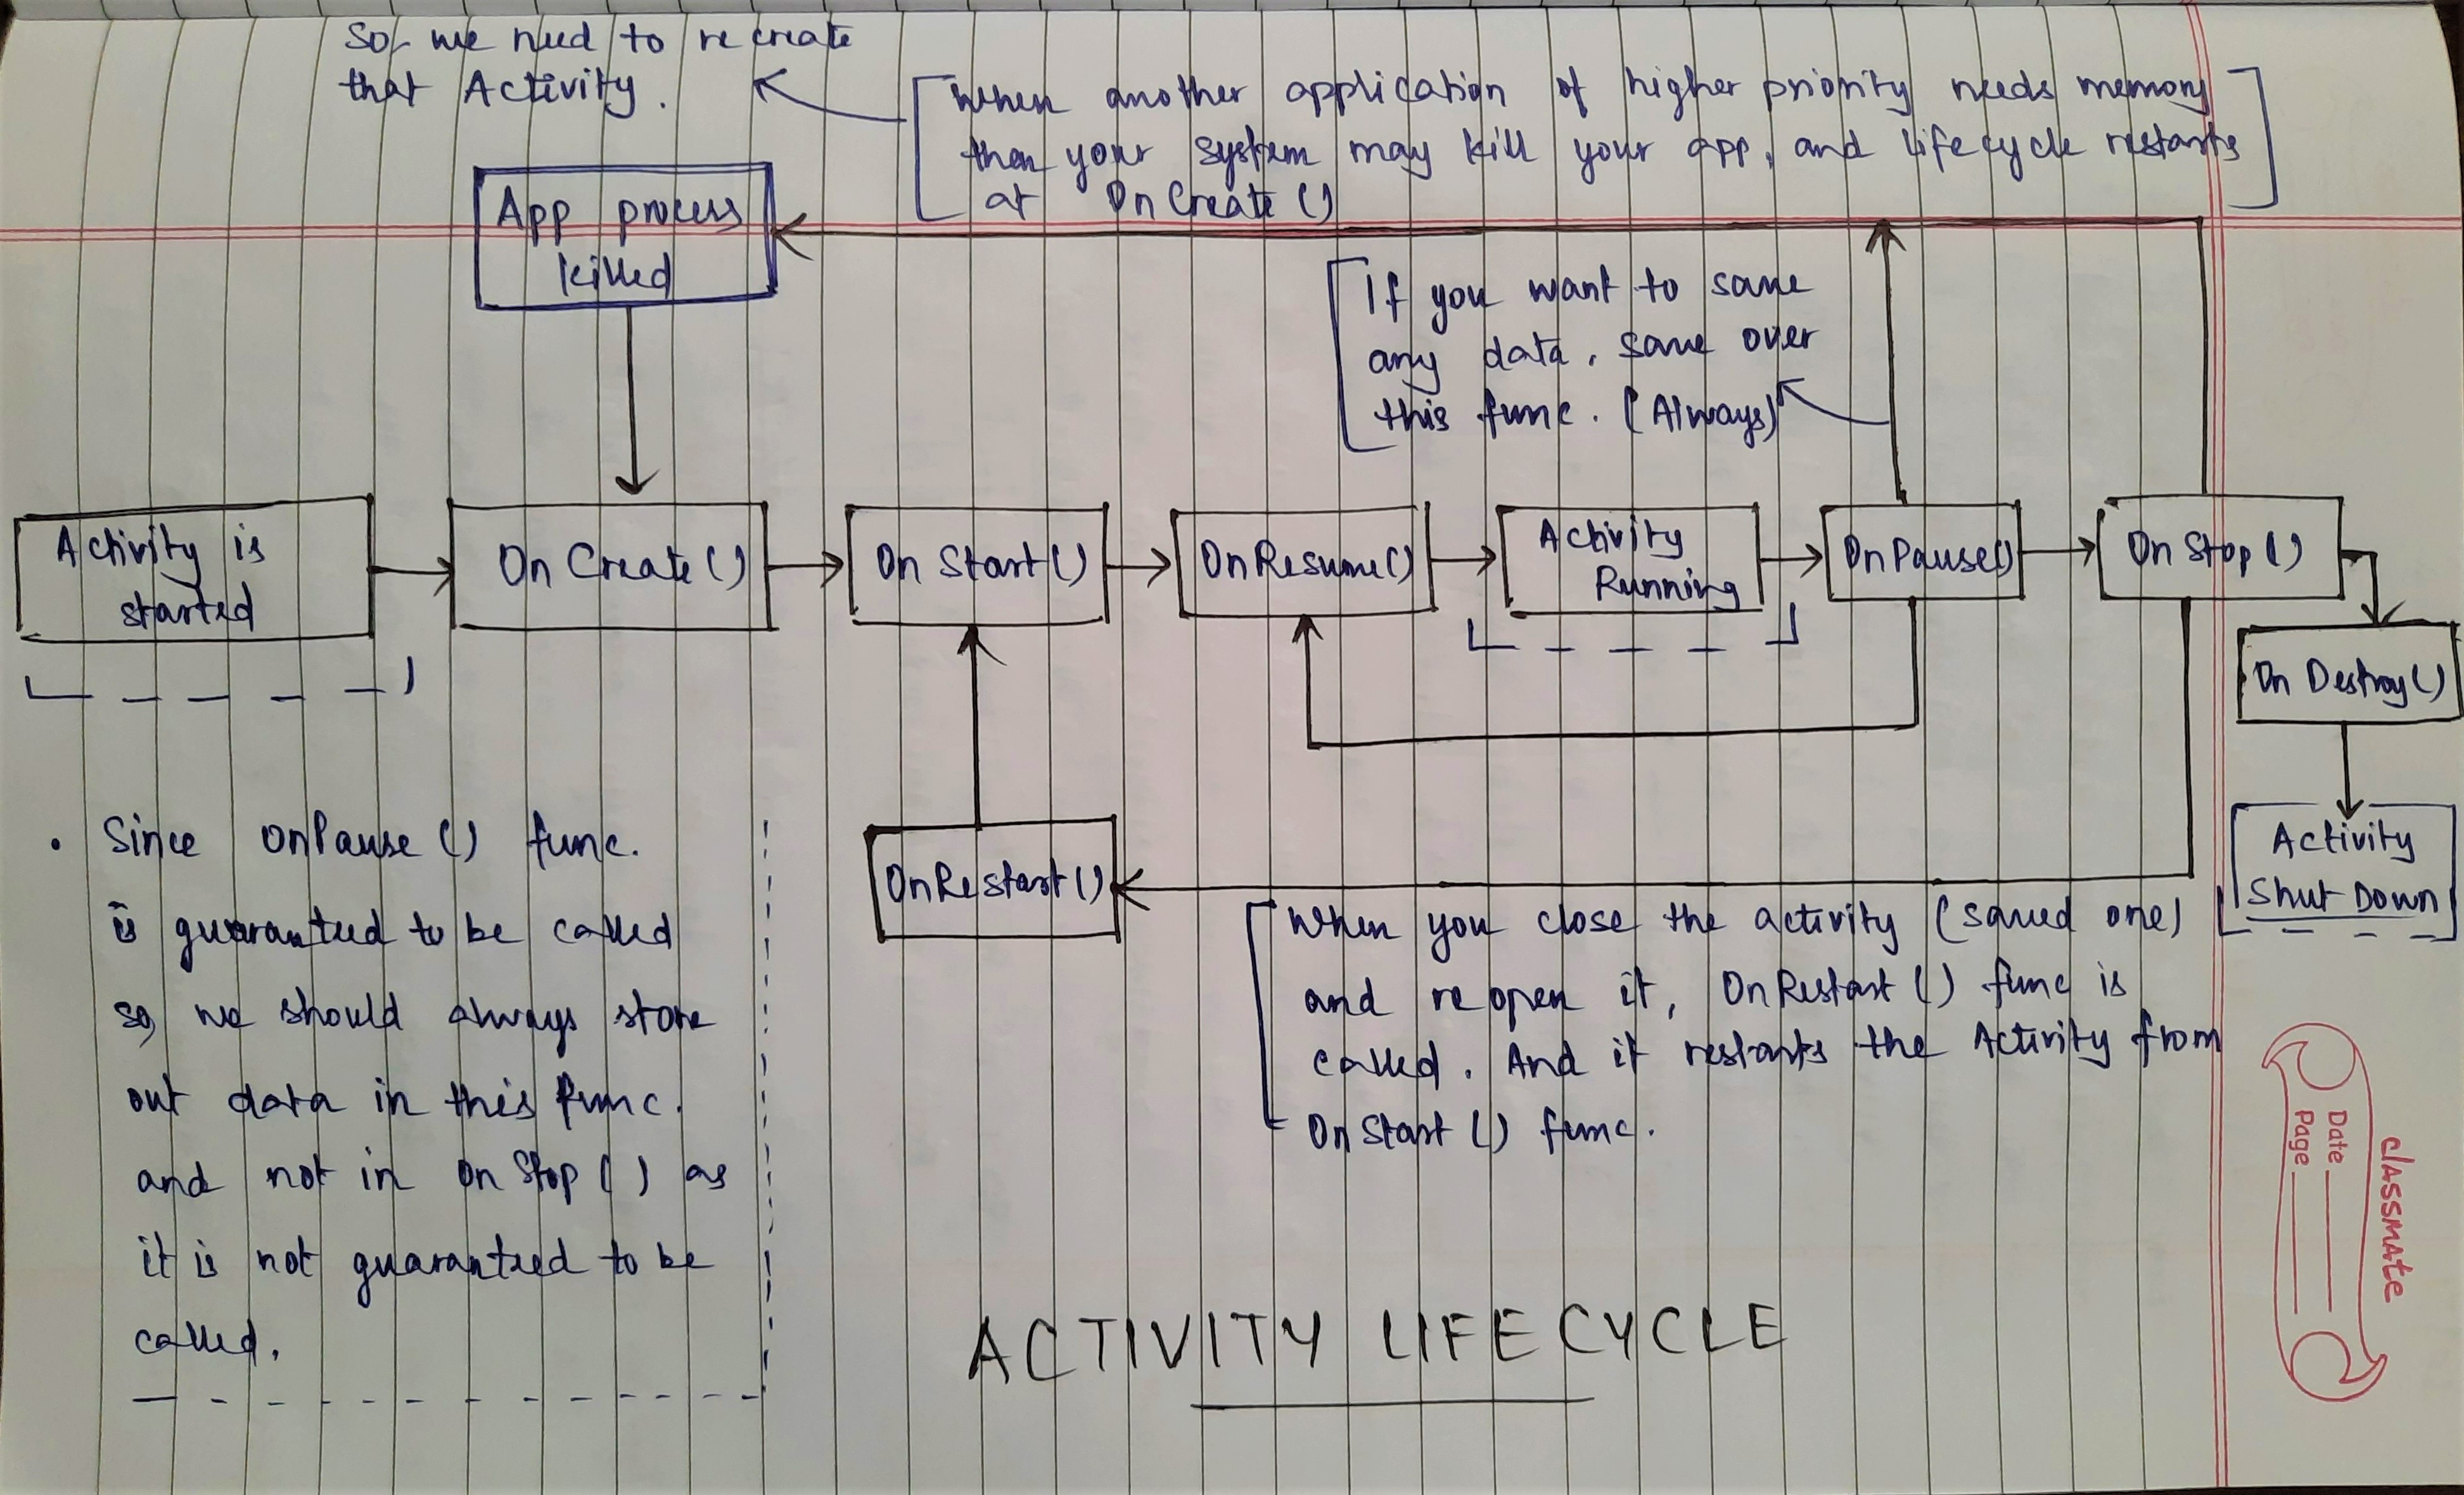 So we need to recreate
that Activity.
[When another application of higher priority needs memory
then your system may kill your app, and lifecycle restarts
at OnCreate()]
App process
killed
[If you want to save
any data, save over
this func. (Always)
Activity is
started
OnCreate()
OnStart()
OnResume()
Activity
Running
OnPause()
OnStop()
OnDestroy()
Activity
Shut Down
OnRestart()
[When you close the activity (saved one)
and reopen it, OnRestart() func is
called. And it restarts the Activity from
OnStart() func.
• Since OnPause() func.
is guaranteed to be called
so, we should always store
out data in this func.
and not in OnStop() as
it is not guaranteed to be
called.
ACTIVITY LIFE CYCLE
classmate
Date
Page